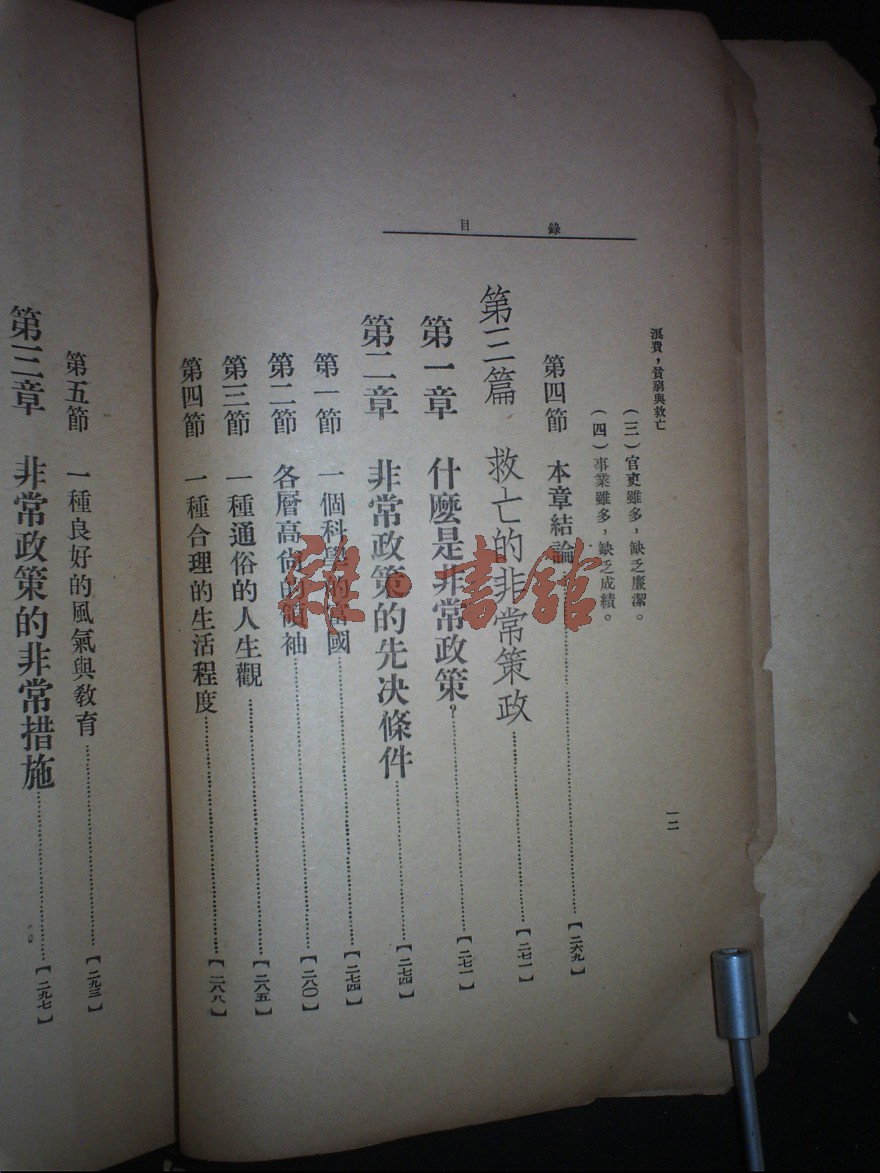 目錄
浪費，貧窮與救亡
一二
（三）官吏雖多，缺乏廉潔。
（四）事業雖多，缺乏成績。
第四節 本章結論……【二六九】
第三篇 救亡的非常策政……【二七一】
第一章 什麼是非常政策？……【二七一】
第二章 非常政策的先決條件……【二七四】
第一節 一個科學的富國……【二七四】
第二節 各層高尚的領袖……【二八〇】
第三節 一種通俗的人生觀……【二八五】
第四節 一種合理的生活程度……【二八八】
第五節 一種良好的風氣與教育……【二九三】
第三章 非常政策的非常措施……【二九七】
雜·書館